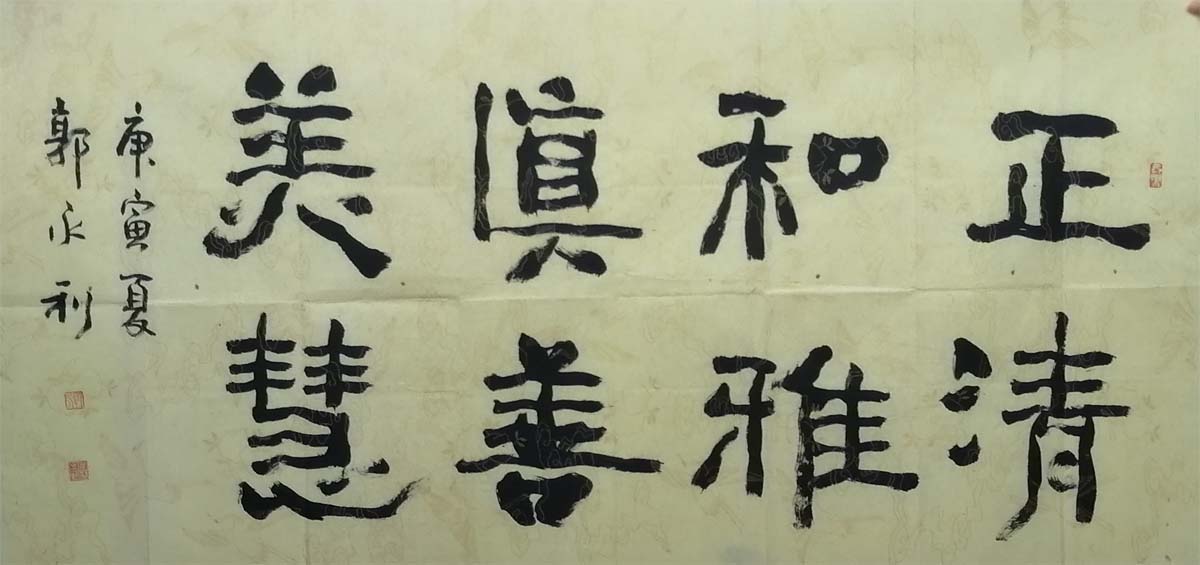 正清
和雅
眞善
美慧
庚寅夏
郭永利